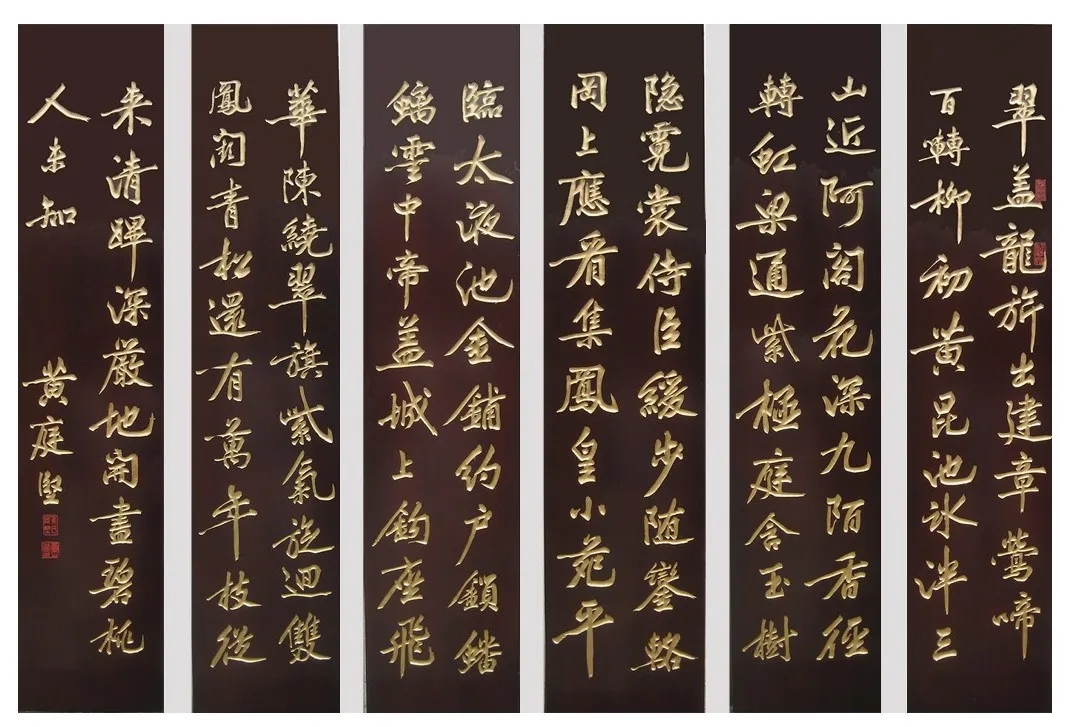 翠盖龍旂出建章鶯啼
百囀柳初黄昆池冰泮三
山近阿阁花深九陌香徑
轉虹梁通紫極庭含玉樹
隐霓裳侍臣緩步随鑾輅
岡上應看集鳳皇小苑平
臨太液池金鋪約户鎖蟠
螭雲中帝盖城上鈎座飛
華陳繞翠旗紫氣旋迴雙
鳳闕青松還有萬年枝從
来清蹕深嚴地開盡碧桃
人未知
黄庭堅